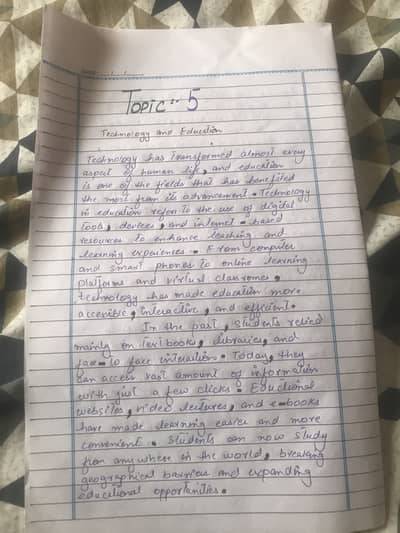 DATE
TOPIC:- 5
Technology and Education
Technology has transformed almost every
aspect of human life, and education
is one of the fields that has benefited
the most from its advancement. Technology
in education refers to the use of digital
tools, devices, and internet-based
resources to enhance teaching and
learning experiences. From computer
and smart phones to online learning
platforms and virtual classrooms,
technology has made education more
accessible, interactive, and efficient.
In the past, students relied
mainly on textbooks, libraries, and
face-to face interaction. Today, they
can access vast amount of information
with just a few clicks. Educational
websites, video lectures, and e-books
have made learning easier and more
convenient. Students can now study
from anywhere in the world, breaking
geographical barriers and expanding
educational opportunities.